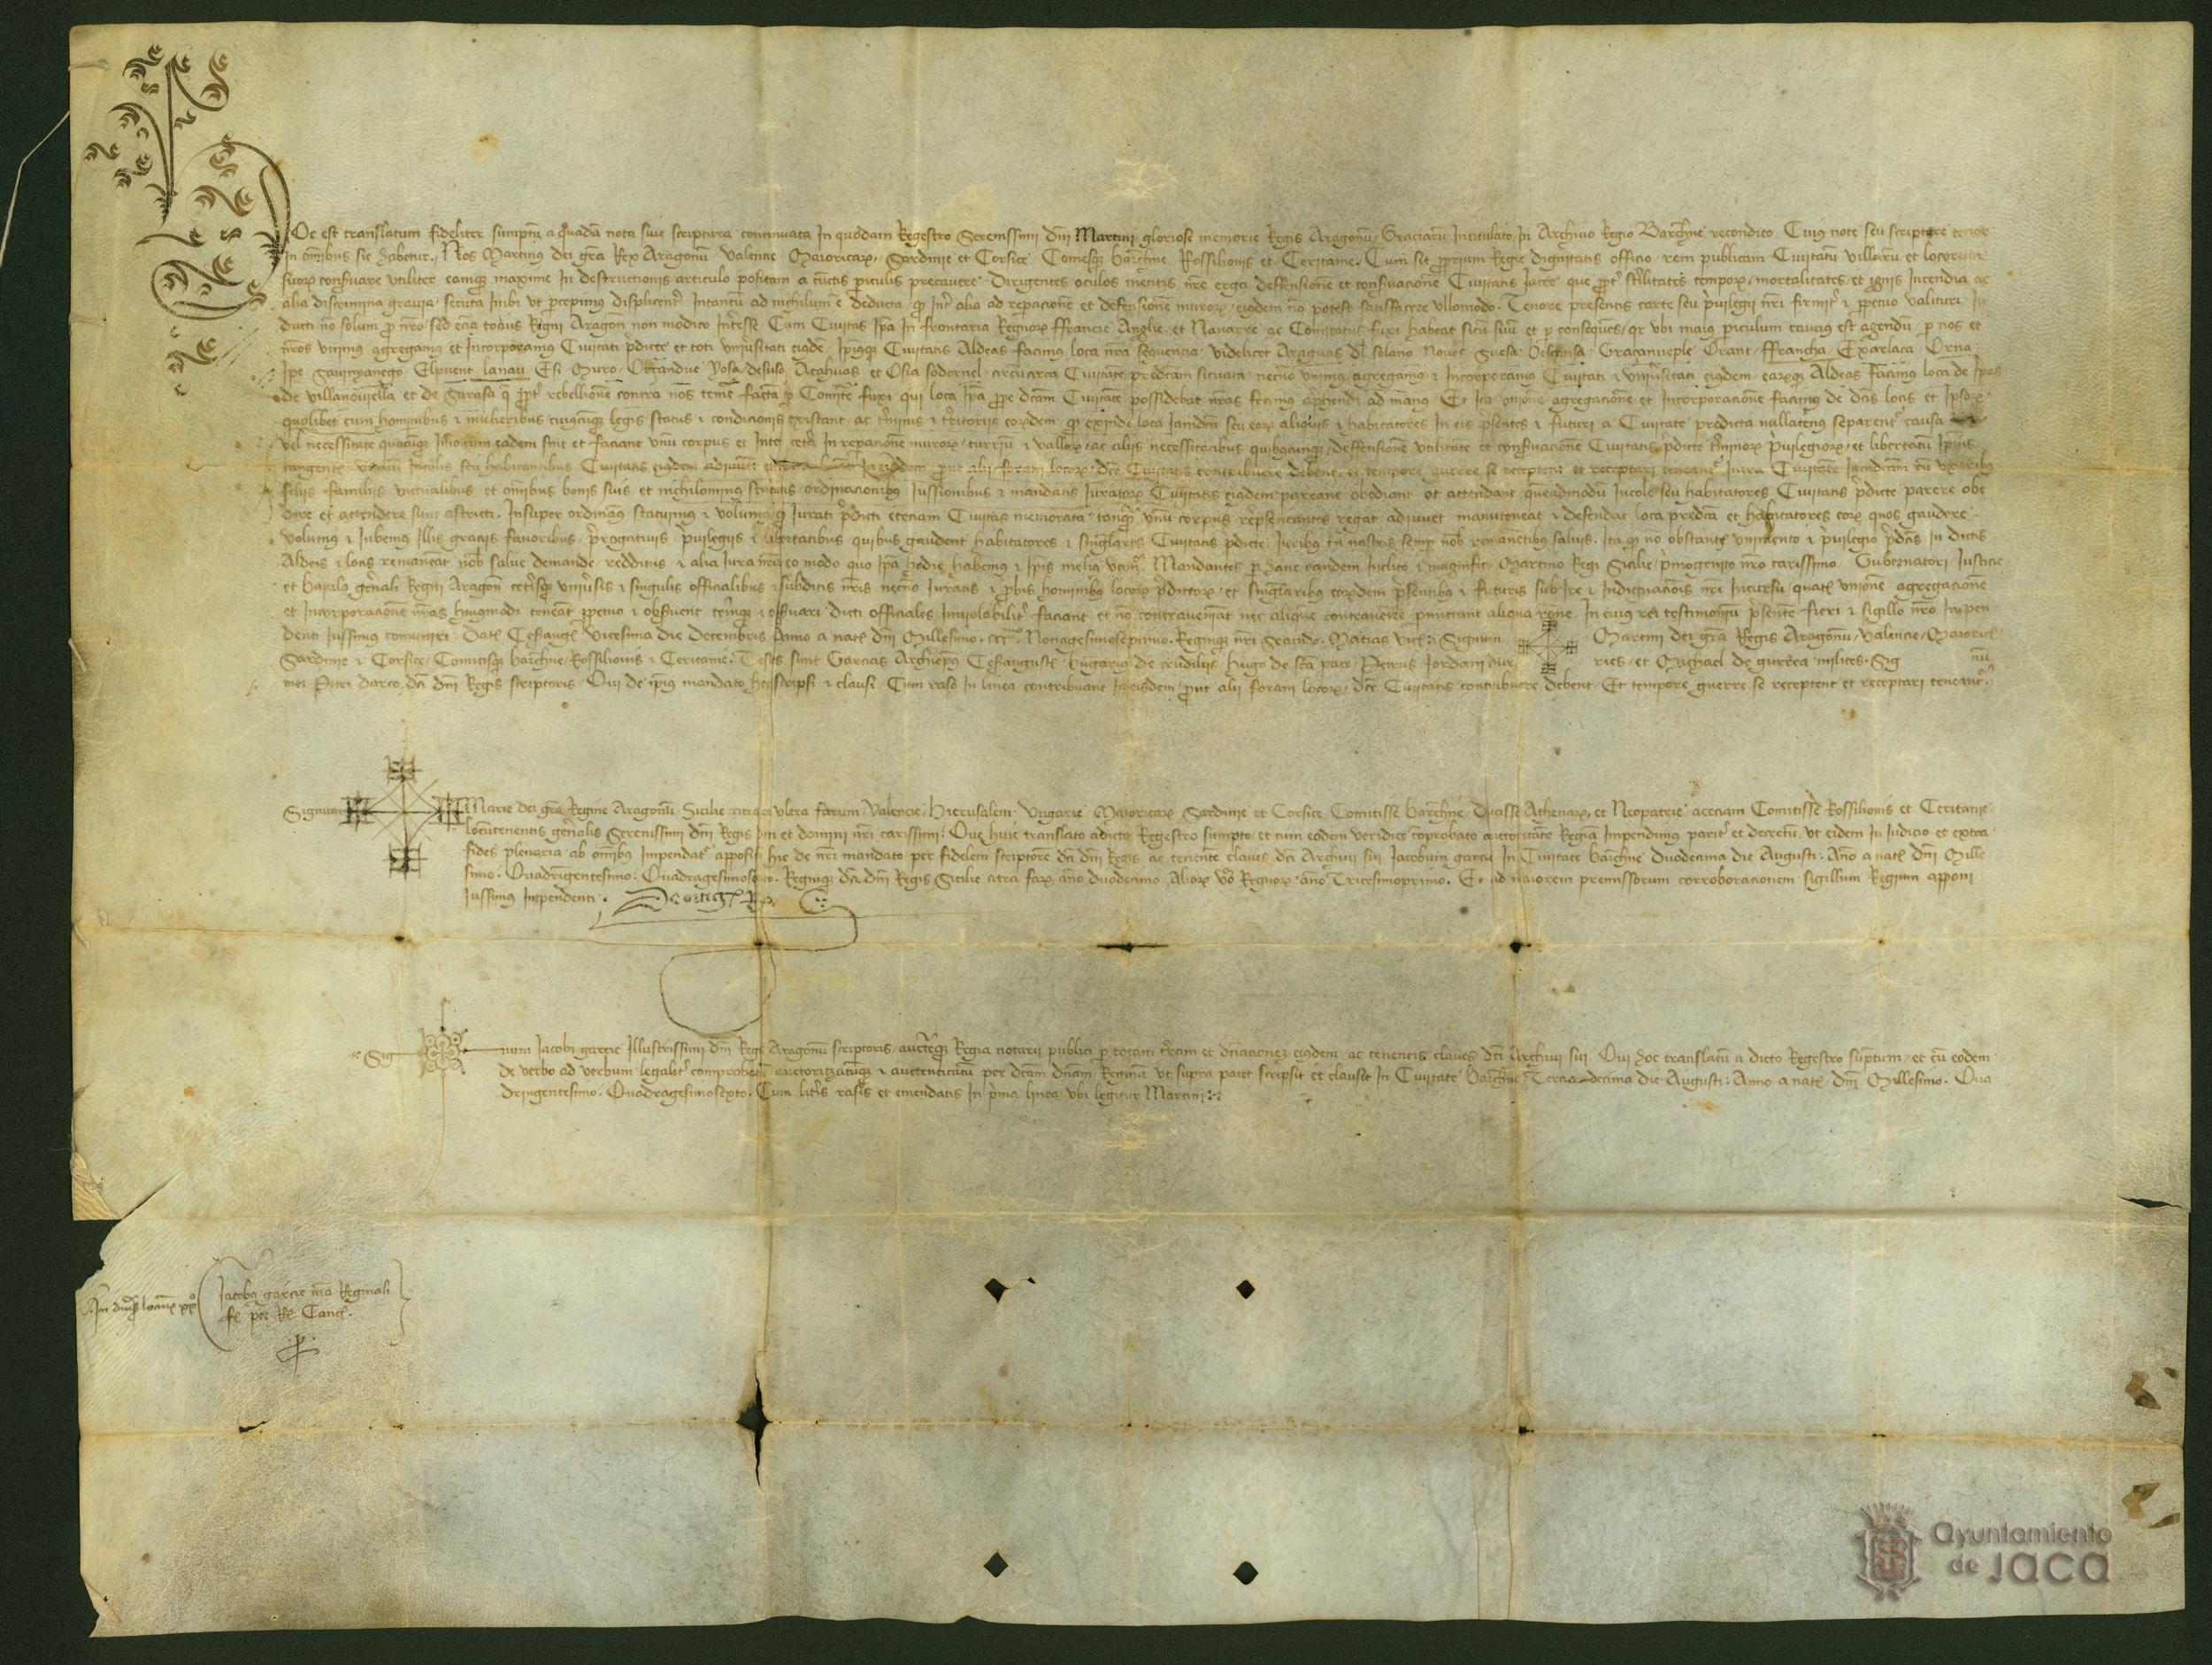 Hoc est translatum fideliter sumptũ a quadã nota sive scriptura continuata In quodam Regestro Serenissimi dñi Martini gloriose memorie Regis Aragonũ, Graciarũ Intitulato, In Archivio Regio Barchñe recondito. Cuius note seu scripture tenor
In om̃ibus sic habetur. Nos Martinus dei gr̃a Rex Aragonũ Valencie Maioricarꝝ, Sardinie et Corsice Comesqꝫ barchñe Rossilionis et Ceritanie. Cum sit proprium Regie dignitatis officio rem publicam Civitatũ villarũ et locorum
suorꝝ conservare utiliter eamqꝫ maxime In destructionis articulo positam a cunctis piculis precavere. Dirigentes oculos mentis nr̃e erga deffensionẽ et conservacionẽ Civitatis Jacce que propt̉ st̉ilitates temporꝝ, mortalitates, et ignis Incendia ac
alia discrimina gravia secuta Inibi ut percepimus displicent̉ Intantũ ad nichilum ẽ deducta, qꝫ Int̉ alia ad repacionẽ et defensionẽ murorꝝ eiusdem nõ potest satisfacere ullomodo. Tenore presentis carte seu privilegii nr̃i firmit̉ ꝛ ppetuo valituri In
ducti nõ solum pro nr̃o sed ecia totius Regni Aragoñ non modico Int̉esse Cum Civitas Ip̃a In frontaria Regnorꝝ ffrancie Anglie et Navarre ac Comitatus fuxi habeat situ suũ et p consequẽs, qr ubi maius piculum caucius est agendũ, p nos et
nr̃os unimus agregamus et Incorporamus Civitati p̃dicte et toti univ̉sitati eiusdẽ, Ip̃iusqꝫ Civitatis Aldeas facimus loca nr̃a sequencia videlicet Araguas dl̃ solano Noves Guasa Bescansa Graçanueple Orant ffrancha Exarlaca Orna
Ipe Saunyanego Elpuent lanau Esi Muro Ortandue Yosa desuso Acahuas et Osia sodornel circu circa Civitatẽ predictam situata necnõ unimus agregamus ꝛ Incorporamus Civitati ꝛ univ̉sitati eiusdem earqꝫ Aldeas facimus loca de Ipas
de villanouiella et de Sarasa q̃ propt̉ rebellionẽ contra nos temẽ facta p Comitẽ fuxi qui loca Ip̃a prope dc̃am Civitatẽ possidebat nr̃as fecimus aprehendi ad manus Et Ita unionẽ agregacionẽ et Incorporacionẽ facimus de dc̃is locis et Ip̃orꝝ
quolibet cum hominibus ꝛ mulieribus cuiuscũqꝫ legis status ꝛ condicionis existant, ac t̉minis ꝛ t̉ritoriis eorꝝdem, qꝫ exinde loca Iamdc̃a seu eorꝝ aliquis ꝛ habitatores In eis p̃sentes ꝛ futuri a Civitate predicta nullatenus separent̉ causa
vel necessitate quacũqꝫ Imo cum eadem sint et faciant unũ corpus et Inte cet̉a In repacionẽ murorꝝ, turriũ ꝛ vallorꝝ, ac aliis necessitatibus quibuscunqꝫ, deffensionẽ utilitatẽ et conservacionẽ Civitatis p̃dicte t̉minorꝝ Privilegiorꝝ, et libertatũ Ip̃ius
tangente Incolis seu habitantibus Civitatis eiusdem adiuvent et prout alii forani locorꝝ, dc̃e Civitatis contribuere debent, et tempore guerre se receptent et receptari teneant̉ Intra Civitatẽ Iamdictam cũ uxoribus
filiis familiis victualibus et om̃ibus bonis suis et nichilominus statutis, ordinacionibus Iussionibus ꝛ mandatis Iuratorꝝ Civitatis eiusdem pareant obediant et attendant queadmodũ Incole seu habitatores Civitatis p̃dicte parere obe
dire et attendere sunt astricti. Insuper ordinam̃ statuimus ꝛ volumus qꝫ Iurati p̃dicti eteciam Civitas memorata, tanqꝫ unũ corpus rep̃sentantes regat adiuvet manuteneat ꝛ defendat loca predicta et habitatores eorꝝ quos gaudere
volumus ꝛ Iubemus Illis graciis favoribus, p̃rogativis, p̃vilegiis ꝛ libertatibus quibus gaudent habitatores ꝛ singl̃ares Civitatis p̃dicte, Iuribus tñ nostris semp nob̃ remanentibus salvis. Ita qꝫ nõ obstante unimento ꝛ p̃vilegio p̃dc̃is In dictis
Aldeis ꝛ locis remaneat nob̃ salve demande redditus ꝛ alia Iura nr̃a eo modo quo Ip̃a hodie habemus ꝛ Ip̃is melius utim̃. Mandantes p hanc eandem Inclito ꝛ magnifico Martino Regi Sicilie, p̃mogenito nr̃o carissimo Gubernatori Iusticie
et baiulo gen̉ali Regni Aragoñ cet̉isqꝫ univ̉sis ꝛ singulis officialibus ꝛ subditis nr̃is necnõ Iuratis ꝛ probis hominibus locorꝝ p̃dictorꝝ, et singl̃aribus eorꝝdem p̃sentibus ꝛ futuris sub Ire ꝛ Indignacionis nr̃i Incursu, quatẽ unionẽ agregacionẽ
et Incorporacionẽ nr̃as huiusmodi teneãt ppetuo ꝛ observent, teneriqꝫ ꝛ observari dicti officiales Inviolabilit̉ faciant et nõ contraveniãt nec aliquẽ contravenire pmittant aliqua rõne. In cuius rei testimoniũ p̃sentẽ fieri ꝛ sigillo nr̃o Inpen
denti Iussimus comuniri. Dat̃ Cesaugẽ Vicesima die Decembris Anno a nat̃ dñi Millesimo. CCCº. Nonagesimoseptimo. Regniqꝫ nr̃i Secundo. Matias vic̃. Signum Martini dei gr̃a Regis Aragonũ, Valencie, Maioric̃
Sardinie ꝛ Corsice, Comitisqꝫ barchñe, Rossilionis ꝛ Ceritanie. Testes sunt Garcias Archiep̃us Cesaugust̃ Bñgarius de crudiliis, hugo de sc̃a pace Petrus Jordani dur ries, et Michael de gurrea milites. Sig nũ
mei Petri darco, dc̃i dñi Regis scriptoris Qui de ip̃ius mandato hec scripsi ꝛ clausi. Cum raso In linea contribuant In eisdem prout alii forani locorꝝ, dc̃e Civitatis contribuere debent. Et tempore guerre se receptent et receptari teneant̉.
Signum Marie dei gr̃a Regine Aragonũ Sicilie citra ꝛ ultra farum, Valencie, Hierusalem, Ungarie Maioricarꝝ Sardinie et Corsice Comitisse barchñe, Ducisse Athenarꝝ, et Neopatrie, aceciam Comitisse Rossilionis et Ceritanie
locũtenentis gen̉alis Serenissimi dñi Regis viri et domini nr̃i carissimi. Que huic translato a dicto Regestro sumpto, et cum eodem veridice cõprobato auctoritatẽ Regiã Impendimus parit̉ et decretũ, ut eidem In Iudicio et extra
fides plenaria ab om̃ibus Impendat̉ apposit̃ hic de nr̃i mandato per fidelem scriptorẽ dc̃i dñi Regis ac tenentẽ claves dc̃i Archivii sui Jacobum garcia In Civitate barchñe Duodecima die Augusti. Año a nat̃ dñi Mille
simo. Quadringentesimo. Quadragesimosexto. Regniqꝫ dc̃i dñi Regis Sicilie citra farꝝ año duodecimo Aliorꝝ vo Regnorꝝ año Tricesimoprimo. Et ad maiorem premissorum corroboracionem sigillum Regium apponi
Iussimus Inpendenti.
Sig num Jacobi garcie Illustrissimi dñi Regis Aragonũ scriptoris, auctẽqꝫ Regia notarii publici p totam tr̃am et dñacionẽ eiusdem ac tenentis claves dc̃i Archivii sui. Qui hoc translatũ a dicto Regestro sũptum, et cũ eodem
de verbo ad verbum legalit̉ comprobatũ auctorizatũqꝫ ꝛ auctenticatũ per dc̃am dñam Reginã ut supra patet scripsit et clausit In Civitate Barchñe Tercia decima die Augusti. Anno a nat̃ dñi Millesimo. Qua
dringentesimo. Quadragesimosexto. Cum lit̉is rasis et emendatis In p̃ma linea ubi legitur Martini
Jacobus garcie mã Reginali
Ayuntamiento
de JACA